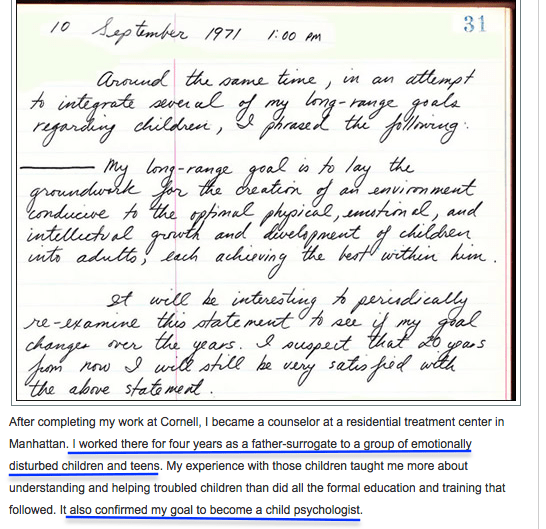 31
10 September 1971 1:00 PM
Around the same time, in an attempt
to integrate several of my long-range goals
regarding children, I phrased the following:
My long-range goal is to lay the
groundwork for the creation of an environment
conducive to the optimal physical, emotional, and
intellectual growth and development of children
into adults, each achieving the best within him.
It will be interesting to periodically
re-examine this statement to see if my goal
changes over the years. I suspect that 20 years
from now I will still be very satisfied with
the above statement.
After completing my work at Cornell, I became a counselor at a residential treatment center in
Manhattan. I worked there for four years as a father-surrogate to a group of emotionally
disturbed children and teens. My experience with those children taught me more about
understanding and helping troubled children than did all the formal education and training that
followed. It also confirmed my goal to become a child psychologist.